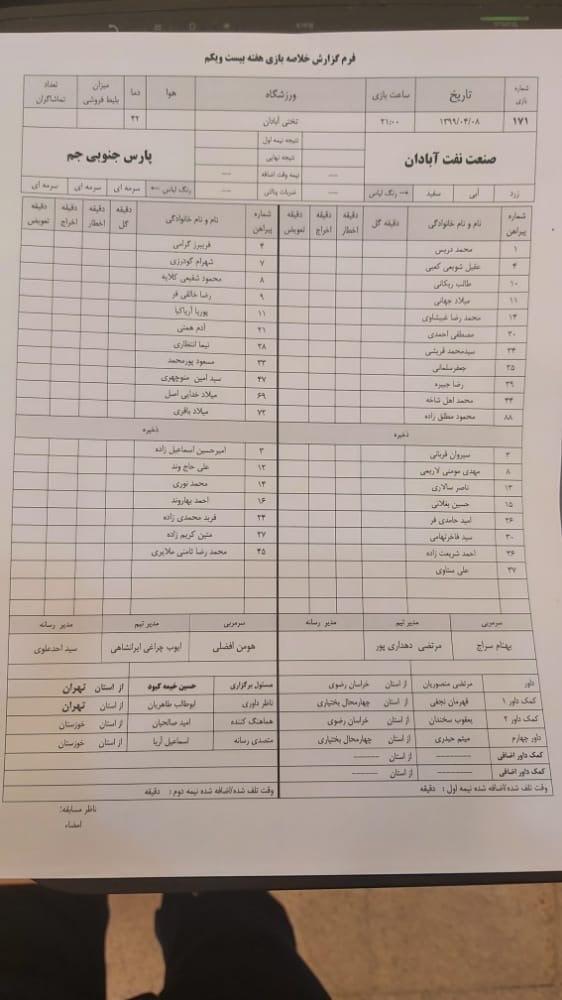 فرم گزارش خلاصه بازی هفته بیست ویکم
شماره بازی تاریخ ساعت بازی ورزشگاه هوا دما میزان بلیط فروشی تعداد تماشاگران
۱۷۱ ۱۳۹۹/۰۴/۰۸ ۲۱:۰۰ تختی آبادان ۴۲
صنعت نفت آبادان نتیجه نیمه اول پارس جنوبی جم
نتیجه نهایی
--- نیمه وقت اضافه ---
زرد آبی سفید رنگ لباس --- ضربات پنالتی --- رنگ لباس سرمه ای سرمه ای سرمه ای
شماره پیراهن نام و نام خانوادگی دقیقه گل دقیقه اخطار دقیقه اخراج دقیقه تعویض شماره پیراهن نام و نام خانوادگی دقیقه گل دقیقه اخطار دقیقه اخراج دقیقه تعویض
۱ محمد دریس ۴ فریبرز گرامی
۴ عقیل شویعی کعبی ۷ شهرام گودرزی
۱۰ طالب ریکانی ۸ محمود شفیعی کلایه
۱۱ میلاد جهانی ۹ رضا خالقی فر
۱۴ محمد رضا غبیشاوی ۱۱ پوریا آریاکیا
۲۰ مصطفی احمدی ۲۱ آدم همتی
۲۴ سیدمحمد قریشی ۲۸ نیما انتظاری
۲۵ جعفرسلمانی ۳۳ مسعود پورمحمد
۳۹ رضا جبیره ۴۷ سید امین منوچهری
۴۴ محمد اهل شاخه ۶۹ میلاد خدایی اصل
۸۸ محمود مطلق زاده ۷۲ میلاد باقری
ذخیره ذخیره
۳ سیروان قربانی ۳ امیرحسین اسماعیل زاده
۸ مهدی مومنی لاریمی ۱۲ علی حاج وند
۱۳ ناصر سالاری ۱۴ محمد نوری
۱۵ حسین بغلانی ۱۶ احمد بهاروند
۲۶ امید حامدی فر ۲۴ فربد محمدی زاده
۳۰ سید فاخرتهامی ۲۷ متین کریم زاده
۳۶ احمد شریعت زاده ۴۵ محمد رضا ثامنی ملایری
۳۷ علی ستاوی
سرمربی مدیر تیم مدیر رسانه سرمربی مدیر تیم مدیر رسانه
بهنام سراج مرتضی دهداری پور هومن افضلی ایوب چراغی ایرانشاهی سید احدعلوی
داور مرتضی منصوریان از استان خراسان رضوی مسئول برگزاری حسین خیمه کبود از استان تهران
کمک داور ۱ قهرمان نجفی از استان چهارمحال بختیاری ناظر داوری ابوطالب طاهریان از استان تهران
کمک داور ۲ یعقوب سخندان از استان خراسان رضوی هماهنگ کننده امید صالحیان از استان خوزستان
داور چهارم میثم حیدری از استان چهارمحال بختیاری متصدی رسانه اسماعیل آریا از استان خوزستان
کمک داور اضافی --------- از استان -------
کمک داور اضافی --------- از استان -------
وقت تلف شده/اضافه شده نیمه اول : دقیقه وقت تلف شده/اضافه شده نیمه دوم : دقیقه
ناظر مسابقه:
امضاء